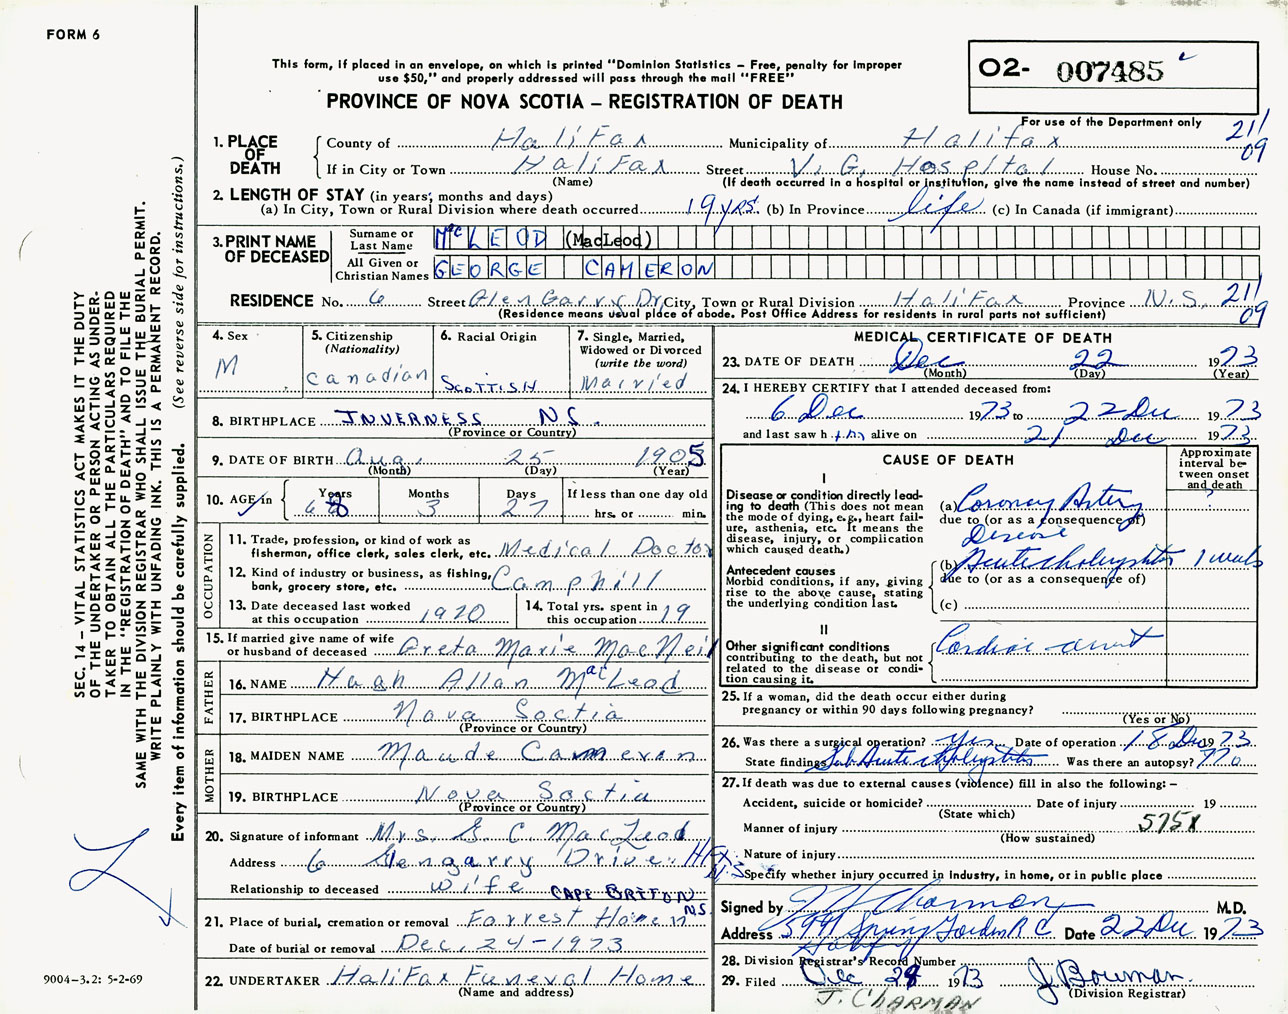 FORM 6
This form, if placed in an envelope, on which is printed "Dominion Statistics – Free, penalty for improper
use $50," and properly addressed will pass through the mail "FREE"
PROVINCE OF NOVA SCOTIA – REGISTRATION OF DEATH
O2- 007485
For use of the Department only
SEC. 14 – VITAL STATISTICS ACT MAKES IT THE DUTY
OF THE UNDERTAKER OR PERSON ACTING AS UNDER-
TAKER TO OBTAIN ALL THE PARTICULARS REQUIRED
IN THE "REGISTRATION OF DEATH" AND TO FILE THE
SAME WITH THE DIVISION REGISTRAR WHO SHALL ISSUE THE BURIAL PERMIT.
WRITE PLAINLY WITH UNFADING INK. THIS IS A PERMANENT RECORD.
Every item of information should be carefully supplied. (See reverse side for instructions.)
1. PLACE OF DEATH County of Halifax Municipality of Halifax 211
09
If in City or Town Halifax Street V.G. Hospital House No.
(Name) (If death occurred in a hospital or institution, give the name instead of street and number)
2. LENGTH OF STAY (in years, months and days)
(a) In City, Town or Rural Division where death occurred 19 yrs. (b) In Province life (c) In Canada (if immigrant)
3. PRINT NAME OF DECEASED
Surname or Last Name McLEOD (MacLeod)
All Given or Christian Names GEORGE CAMERON
RESIDENCE No. 6 Street Glen Garry Dr City, Town or Rural Division Halifax Province N.S. 211
09
(Residence means usual place of abode. Post Office Address for residents in rural parts not sufficient)
4. Sex
M
5. Citizenship
(Nationality)
Canadian
6. Racial Origin
SCOTTISH
7. Single, Married,
Widowed or Divorced
(write the word)
Married
8. BIRTHPLACE INVERNESS NS.
(Province or Country)
9. DATE OF BIRTH Aug. 25 1905
(Month) (Day) (Year)
10. AGE in Years 68 Months 3 Days 27 If less than one day old
hrs. or min.
OCCUPATION
11. Trade, profession, or kind of work as
fisherman, office clerk, sales clerk, etc. Medical Doctor
12. Kind of industry or business, as fishing,
bank, grocery store, etc. Camphill
13. Date deceased last worked
at this occupation 1970
14. Total yrs. spent in
this occupation 19
15. If married give name of wife
or husband of deceased Greta Marie MacNeil
FATHER
16. NAME Hugh Allan MacLeod
17. BIRTHPLACE Nova Soctia
(Province or Country)
MOTHER
18. MAIDEN NAME Maude Cameron
19. BIRTHPLACE Nova Soctia
(Province or Country)
20. Signature of informant Mrs. G C MacLeod
Address 6 Glengarry Drive. HFX
N.S
Relationship to deceased wife CAPE BRETON
N.S.
21. Place of burial, cremation or removal Forrest Haven
Date of burial or removal Dec. 24-1973
22. UNDERTAKER Halifax Funeral Home
(Name and address)
9004-3.2: 5-2-69
MEDICAL CERTIFICATE OF DEATH
23. DATE OF DEATH Dec 22 1973
(Month) (Day) (Year)
24. I HEREBY CERTIFY that I attended deceased from:
6 Dec 1973 to 22 Dec 1973
and last saw him alive on 21 Dec 1973
CAUSE OF DEATH
Approximate interval between onset and death
I
Disease or condition directly lead-
ing to death (This does not mean
the mode of dying, e.g., heart fail-
ure, asthenia, etc. It means the
disease, injury, or complication
which caused death.)
(a) Coronary Artery ?
due to (or as a consequence of)
Disease
Antecedent causes
Morbid conditions, if any, giving
rise to the above cause, stating
the underlying condition last.
(b) Acute cholecystitis 1 week
due to (or as a consequence of)
(c)
II
Other significant conditions
contributing to the death, but not
related to the disease or condi-
tion causing it.
Cardiac arrest
25. If a woman, did the death occur either during
pregnancy or within 90 days following pregnancy?
(Yes or No)
26. Was there a surgical operation? Yes Date of operation 18 Dec 1973
State findings Sub Acute cholecystitis Was there an autopsy? no
27. If death was due to external causes (violence) fill in also the following: –
Accident, suicide or homicide? Date of injury 19
(State which)
Manner of injury 575X
(How sustained)
Nature of injury
Specify whether injury occurred in industry, in home, or in public place
Signed by J Charman M.D.
Address 5991 Spring Garden Rd Date 22 Dec 1973
Halifax
28. Division Registrar's Record Number
29. Filed Dec 28 1973 J Bowman
(Division Registrar)
J. CHARMAN